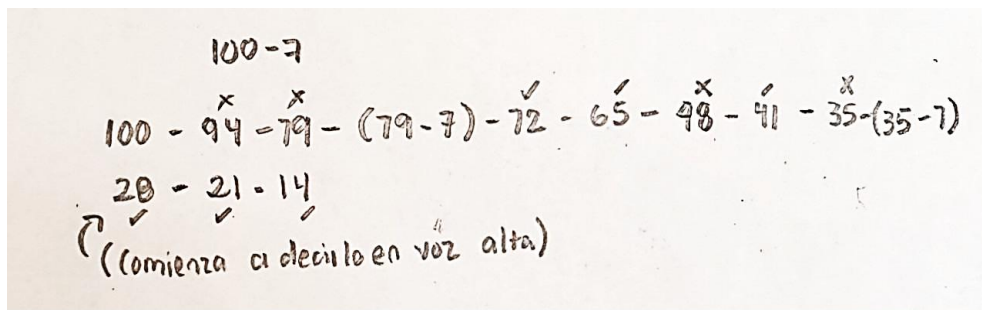 100-7
x x ✓ ✓ x ✓ x
100 - 94 - 79 - (79-7) - 72 - 65 - 48 - 41 - 35-(35-7)
28 - 21 - 14
✓ ✓ ✓
((comienza a decirlo en voz alta)